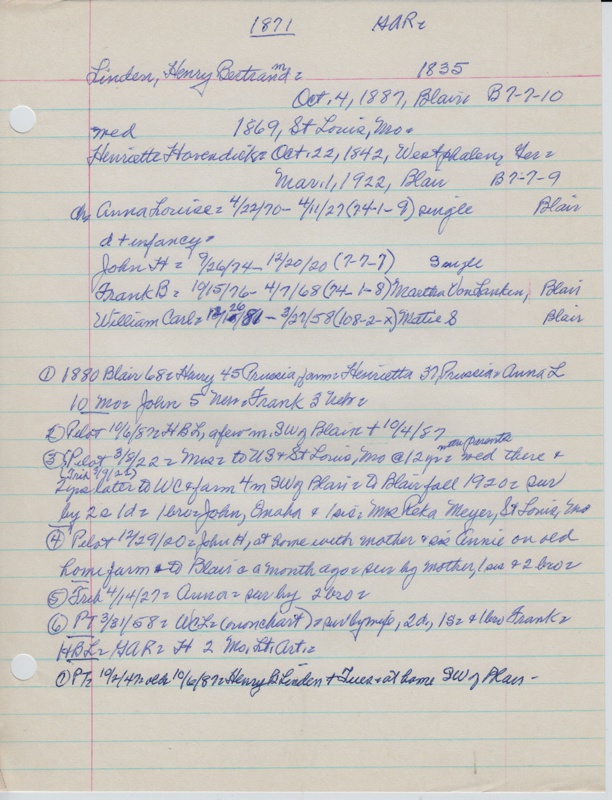 1871 GAR=
Linden, Henry Bertrand m= 1835
Oct. 4, 1887, Blair B7-7-10
med 1869, St Louis, Mo=
Henrietta Hovendick= Oct. 22, 1842, Westphalen, Ger=
Mar. 1, 1922, Blair B7-7-9
ch Anna Louise= 4/22/70- 4/11/27 (74-1-9) single Blair
d + infancy=
John H= 9/26/74- 12/20/20 (7-7-7) Single
Frank B= 10/15/76- 4/7/68 (74-1-8) Martha VonLanken, Blair
William Carl= /26/81- 3/27/58 (108-2-X) Matie S Blair
① 1880 Blair 68= Harry 45 Prussia, farm= Henrietta 37, Prussia= Anna L
10 mo= John 5 Neb= Frank 3 Nebr=
② Pilot 10/6/87= H B L, a few m. SW of Blair + 10/4/87
③ Pilot 3/8/22= Mrs= to US & St Louis, Mo @ 12 yr= with parents med there &
(Trib 3/9/22) 2 yrs later to WC & farm 4 m SW of Blair= to Blair fall 1920= sur
by 2s 1d= 1 bro= John, Omaha & 1 sis= Mrs Reka Meyer, St Louis, Mo
④ Pilot 12/29/20= John H, at home with mother & sis Annie on old
home farm & to Blair @ a month ago= sur by mother, 1 sis & 2 bro=
⑤ Trib 4/14/27= Anna= sur by 2 bro=
⑥ PT 3/31/58= WCL= (own chart)= sur by wife, 2d, 1s= & 1 bro Frank=
HBL= GAR= H 2 Mo. Lt. Art.=
① PT= 10/2/47= 10/6/87= Henry B Linden + Tues= at home SW of Blair-